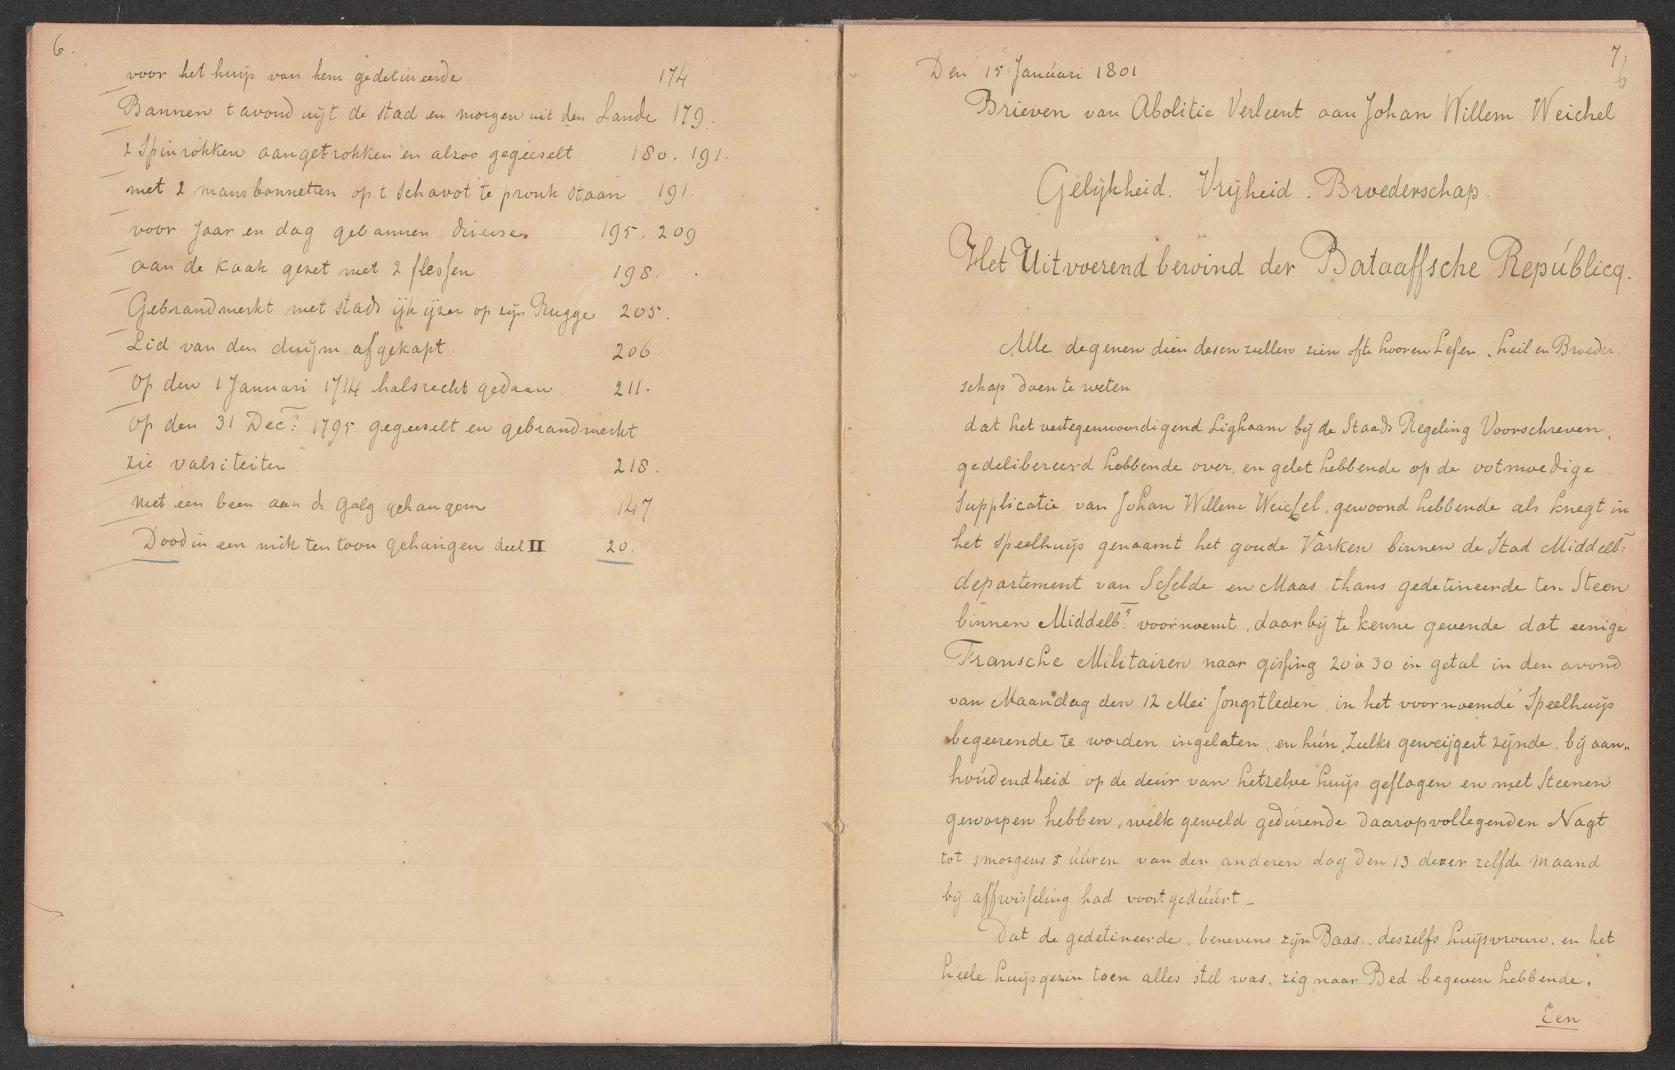 6.
voor het huijs van hem gedetineerde 174
Bannen t avond uijt de stad en morgen uit den Lande 179.
2 Spinrokken aangetrokken en alzoo gegeeselt 180. 191.
met 2 mansbonnetten op t schavot te pronk staan 191.
voor Jaar en dag gebannen diverse. 195. 209
aan de kaak gezet met 2 flessen 198.
Gebrandmerkt met stads ijk ijzer op zijn Rugge 205.
Lid van den duijm afgekapt. 206
op den 1 Januari 1714 halsrecht gedaan 211.
op den 31 Decr: 1795 gegeeselt en gebrandmerkt
zie valsiteiten 218.
met een been aan de galg gehangen 147
Dood in een mik ten toon gehangen deel II 20.
7
6
Den 15 Januari 1801
Brieven van Abolitie Verleent aan Johan Willem Weichel
Gelijkheid. Vrijheid. Broederschap.
Het Uitvoerend bewind der Bataaffsche Republicq.
Alle degenen dien desen zullen zien ofte hooren Lesen, heil en Broeder-
schap doen te weten
dat het vertegenwoordigend Lighaam bij de Staads Regeling Voorschreven,
gedelibereerd hebbende over, en gelet hebbende op de ootmoedige
Supplicatie van Johan Willem Weichel, gewoond hebbende als knegt in
het speelhuijs genaamt het goude Varken binnen de Stad Middelb:
departement van Schelde en Maas thans gedetineerde ten Steen
binnen Middelb: voornoemt, daarbij te kenne gevende dat eenige
Fransche Militairen naar gissing 20 à 30 in getal in den avond
van Maandag den 12 Mei Jongstleden, in het voornoemde Speelhuijs
begeerende te worden ingelaten, en hún zulks geweijgert zijnde, bij aan„
hoúdendheid op de deúr van hetzelve huijs geslagen en met Steenen
geworpen hebben, welk geweld gedúrende daaropvollegenden Nagt
tot smorgens 5 úúren van den anderen dag den 13 dezer zelfde maand
bij affwisseling had voortgedúúrt -
Dat de gedetineerde, benevens zijn Baas, deszelfs huijsvrouw, en het
heele huijsgezin toen alles stil was, zig naar Bed begeven hebbende,
Een